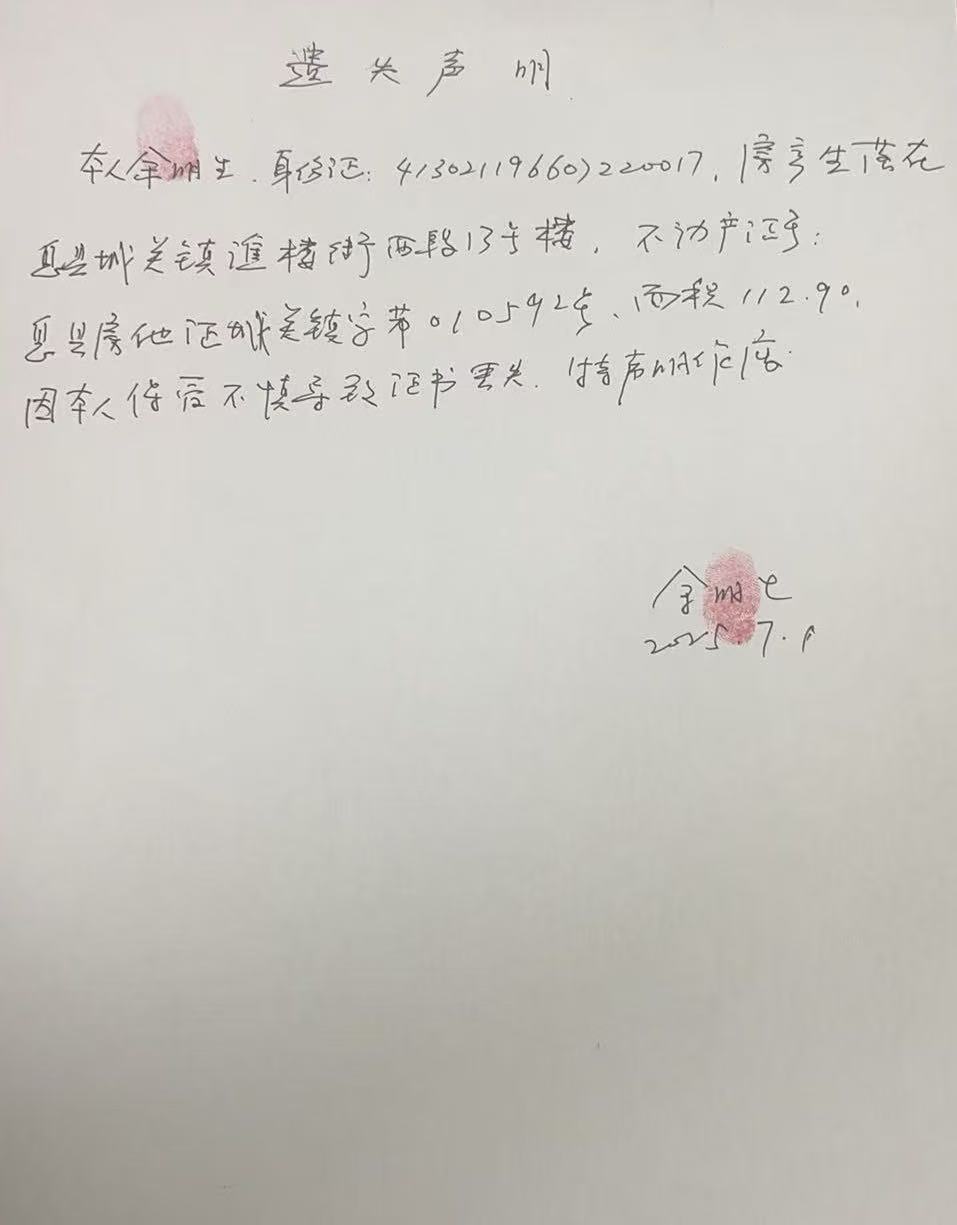 遗失声明
本人余明生.身份证:413021196607220017,房产坐落在
息县城关镇谯楼街西段13号楼,不动产证号:
息县房他证城关镇字第010592号、面积112.90,
因本人保管不慎导致证书丢失.特声明作废.
余明生
2025.7.1